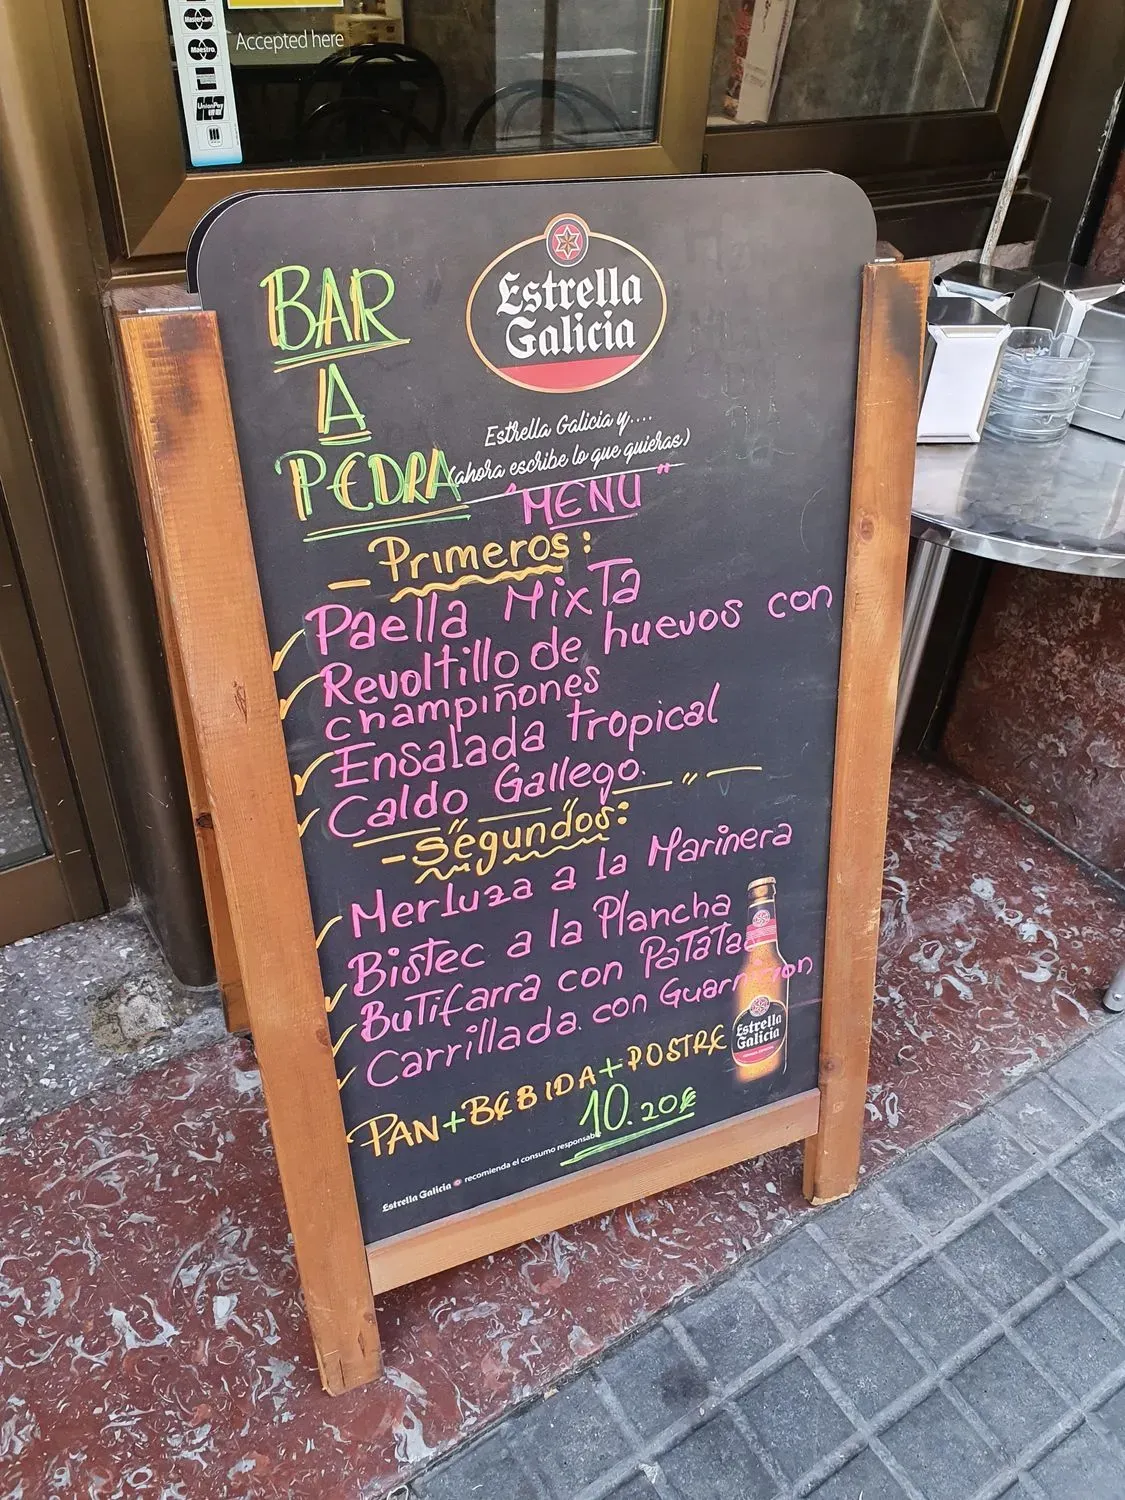 MasterCard
Maestro
UnionPay
Accepted here
Estrella
Galicia
BAR
A
PEDRA
Estrella Galicia y....
(ahora escribe lo que quieras)
"MENU"
- Primeros:
Paella Mixta
Revoltillo de huevos con
champiñones
Ensalada tropical
Caldo Gallego.
- Segundos:
Merluza a la Marinera
Bistec a la Plancha
Butifarra con Patatas
Carrillada con Guarnicion
PAN+BEBIDA+POSTRE
10.20€
Estrella
Galicia
Estrella Galicia recomienda el consumo responsable